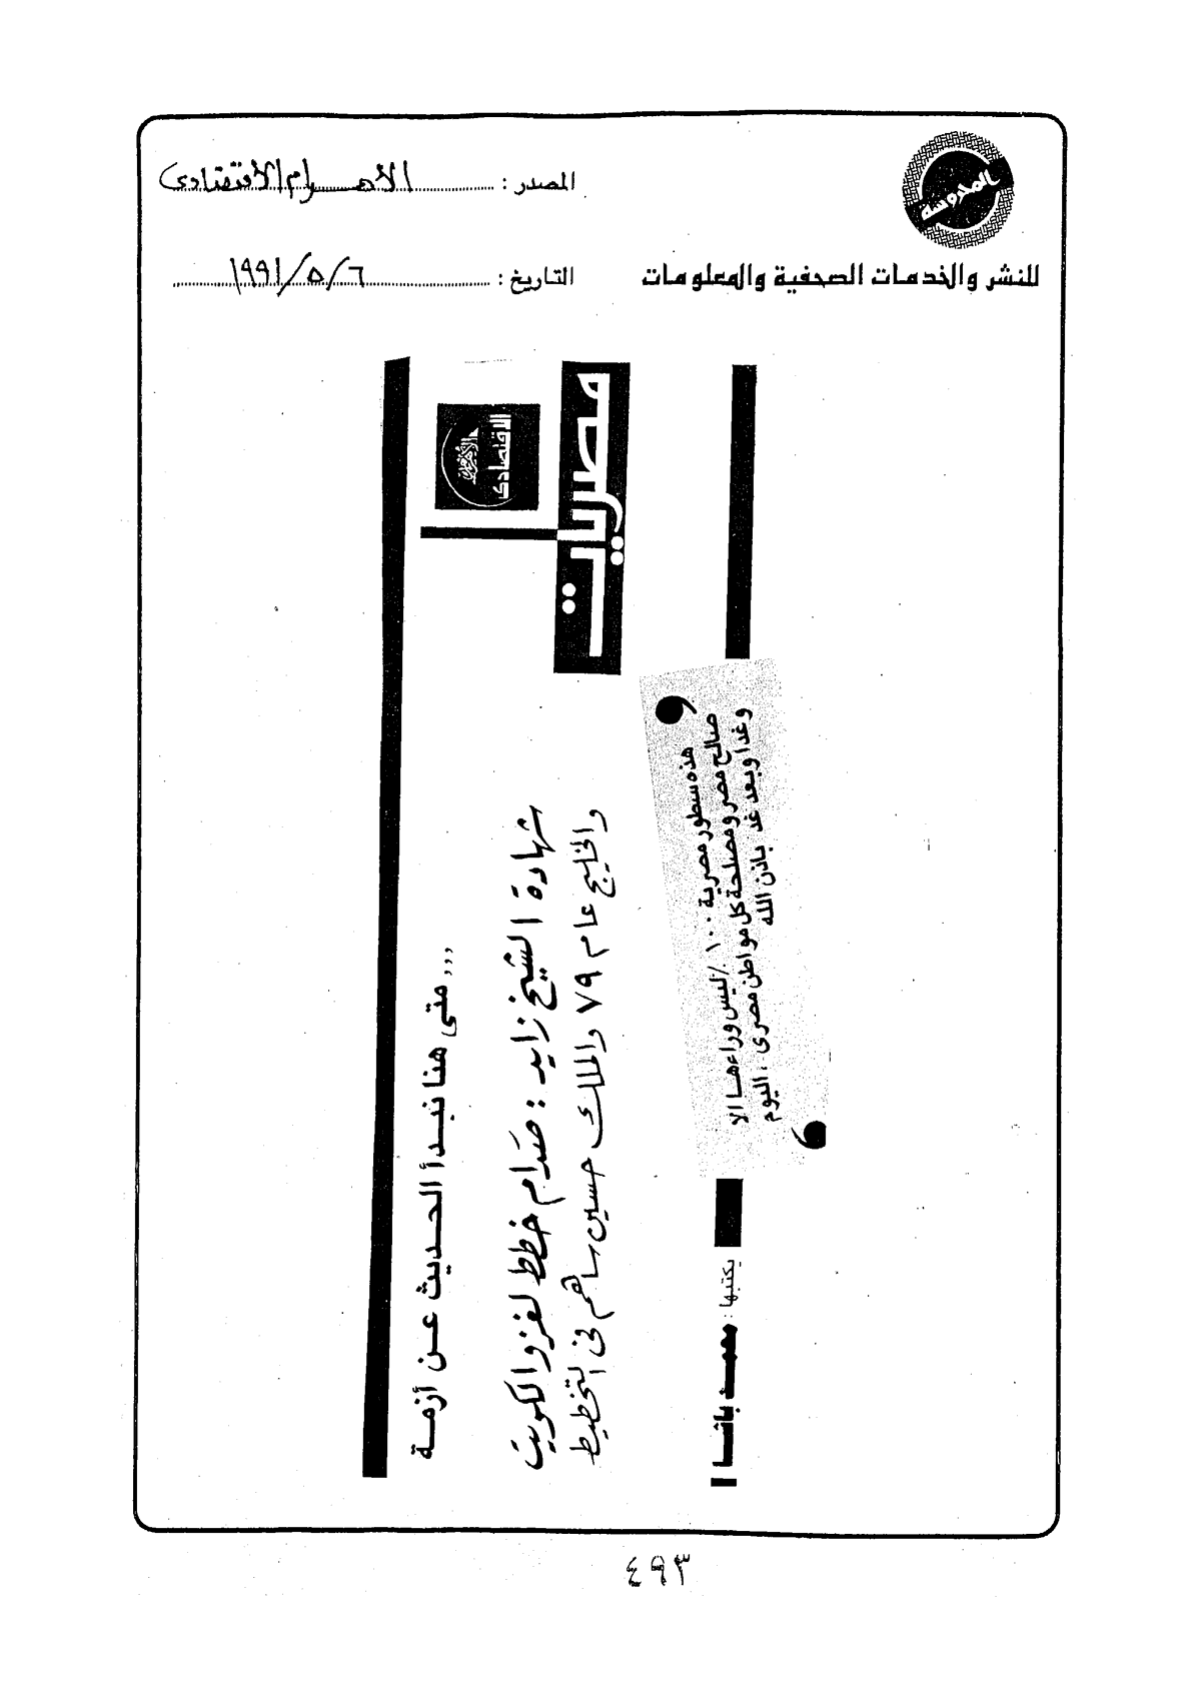 المحروسة
للنشر والخدمات الصحفية والمعلومات
المصدر : الأهرام الاقتصادى
التاريخ : ٦/٥/١٩٩١
الأهرام
الاقتصادى
مصريات
... متى هنا نبدأ الحديث عن أزمة
شهادة الشيخ زايد : صدام خطط لغزو الكويت
والخليج عام ٧٩ والملك حسين ساهم فى التخطيط
هذه سطور مصرية ١٠٠٪ ليس وراءها الا
صالح مصر ومصلحة كل مواطن مصرى ، اليوم
وغدا وبعد غد باذن الله
يكتبها : محمد باشا
٤٩٣